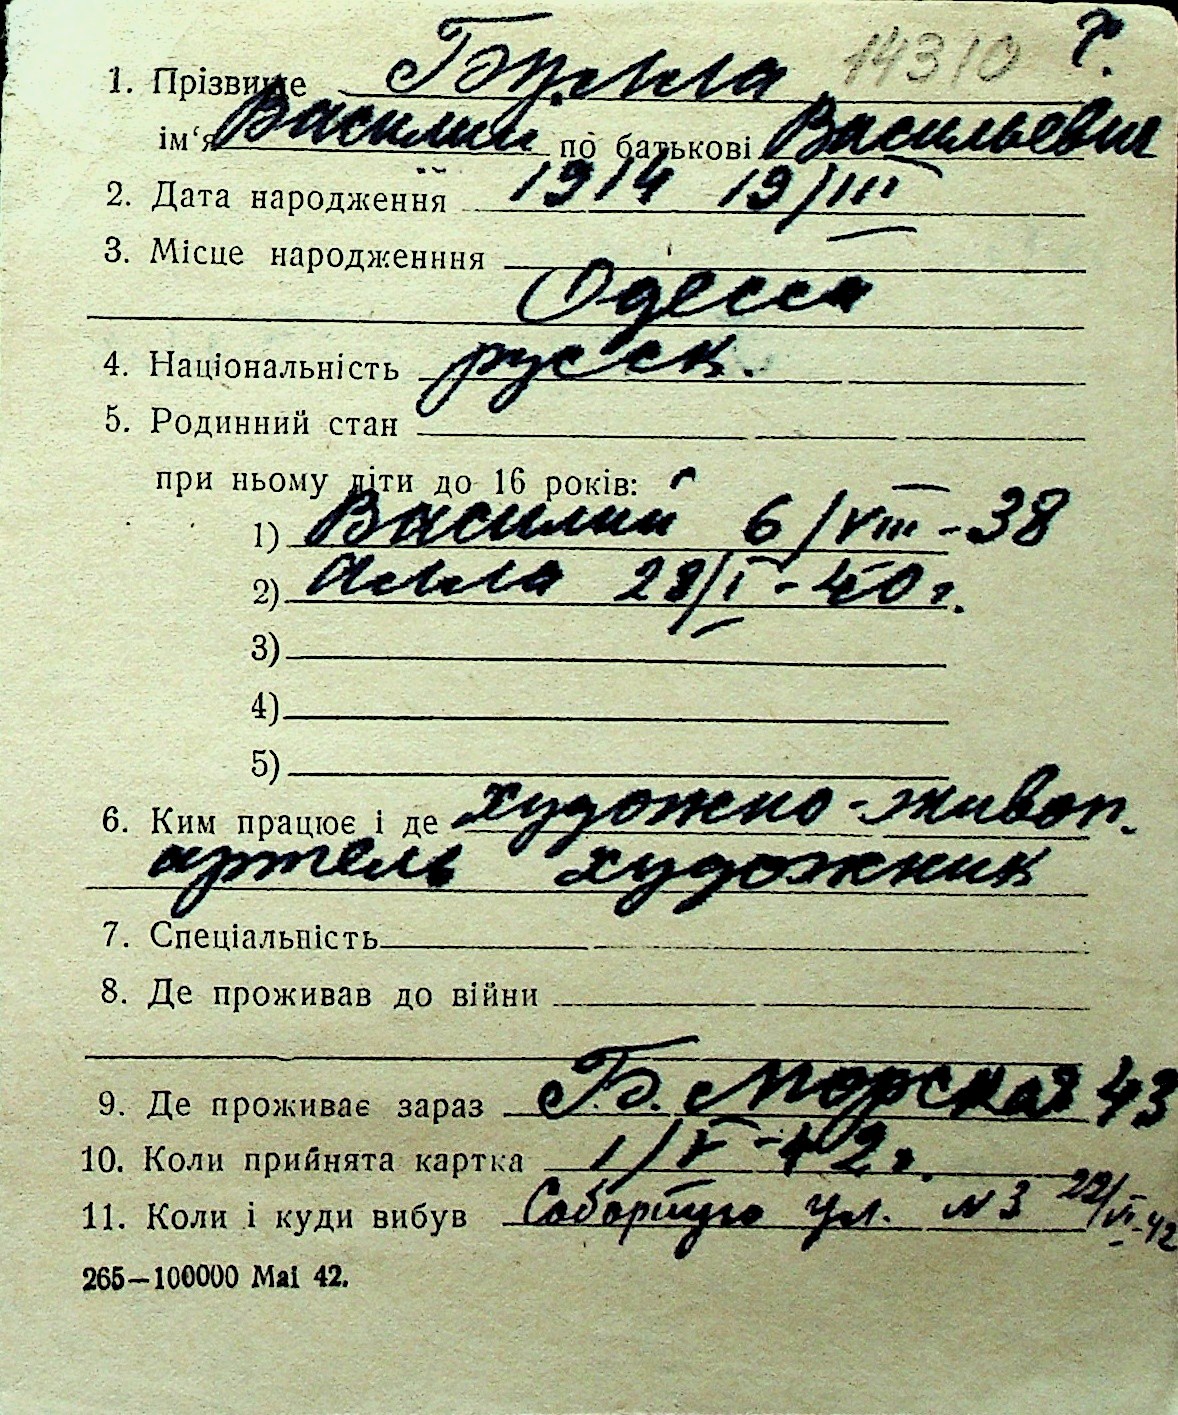 14310 х.
1. Прізвище Булла
ім‘я Василий по батькові Васильевич
2. Дата народження 1914 19/III
3. Місце народженння
Одесса
4. Національність русск.
5. Родинний стан
при ньому діти до 16 років:
1) Василий 6/VIII-38
2) Алла 28/I-40 г.
3)
4)
5)
6. Ким працює і де художно-живоп.
артель художник
7. Спеціальність
8. Де проживав до війни
9. Де проживає зараз Б. Морская 43
10. Коли прийнята картка 1/V-42 г.
11. Коли і куди вибув Соборную ул. N 3 22/VI-42
265—100000 Mai 42.